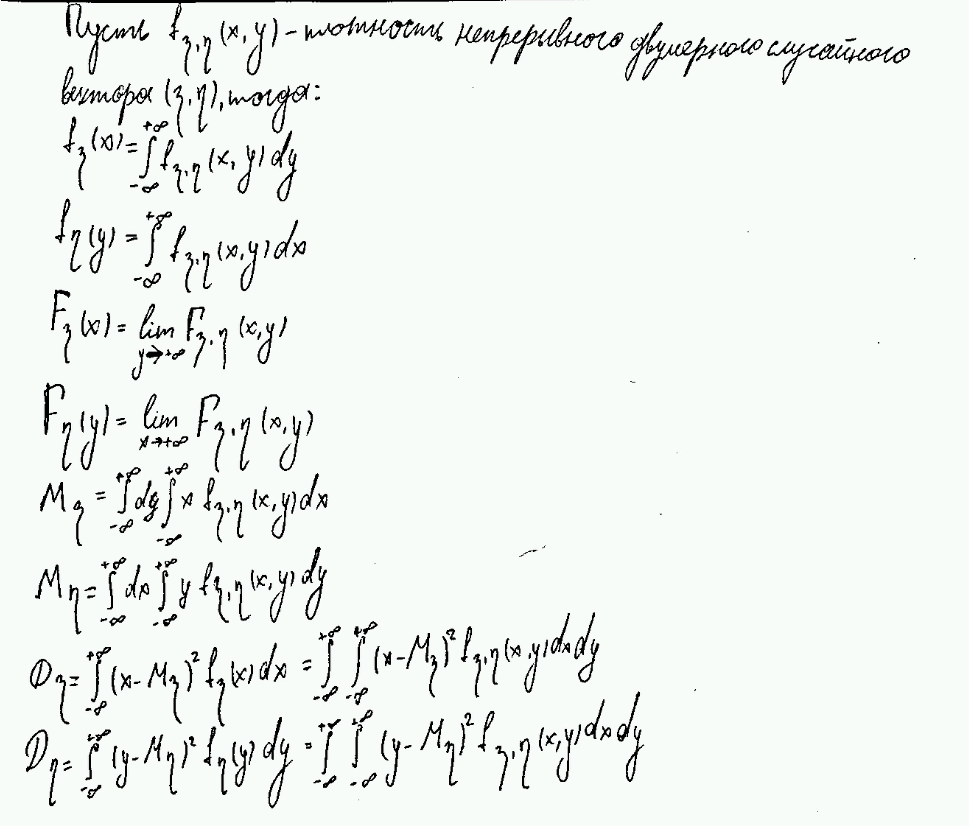 Пусть f_{ξ,η}(x,y) – плотность непрерывного двумерного случайного
вектора (ξ,η), тогда:
f_ξ(x) = ∫_{-∞}^{+∞} f_{ξ,η}(x,y) dy
f_η(y) = ∫_{-∞}^{+∞} f_{ξ,η}(x,y) dx
F_ξ(x) = lim_{y→+∞} F_{ξ,η}(x,y)
F_η(y) = lim_{x→+∞} F_{ξ,η}(x,y)
M_ξ = ∫_{-∞}^{+∞} dy ∫_{-∞}^{+∞} x f_{ξ,η}(x,y) dx
M_η = ∫_{-∞}^{+∞} dx ∫_{-∞}^{+∞} y f_{ξ,η}(x,y) dy
D_ξ = ∫_{-∞}^{+∞} (x-M_ξ)² f_ξ(x) dx = ∫_{-∞}^{+∞} ∫_{-∞}^{+∞} (x-M_ξ)² f_{ξ,η}(x,y) dx dy
D_η = ∫_{-∞}^{+∞} (y-M_η)² f_η(y) dy = ∫_{-∞}^{+∞} ∫_{-∞}^{+∞} (y-M_η)² f_{ξ,η}(x,y) dx dy